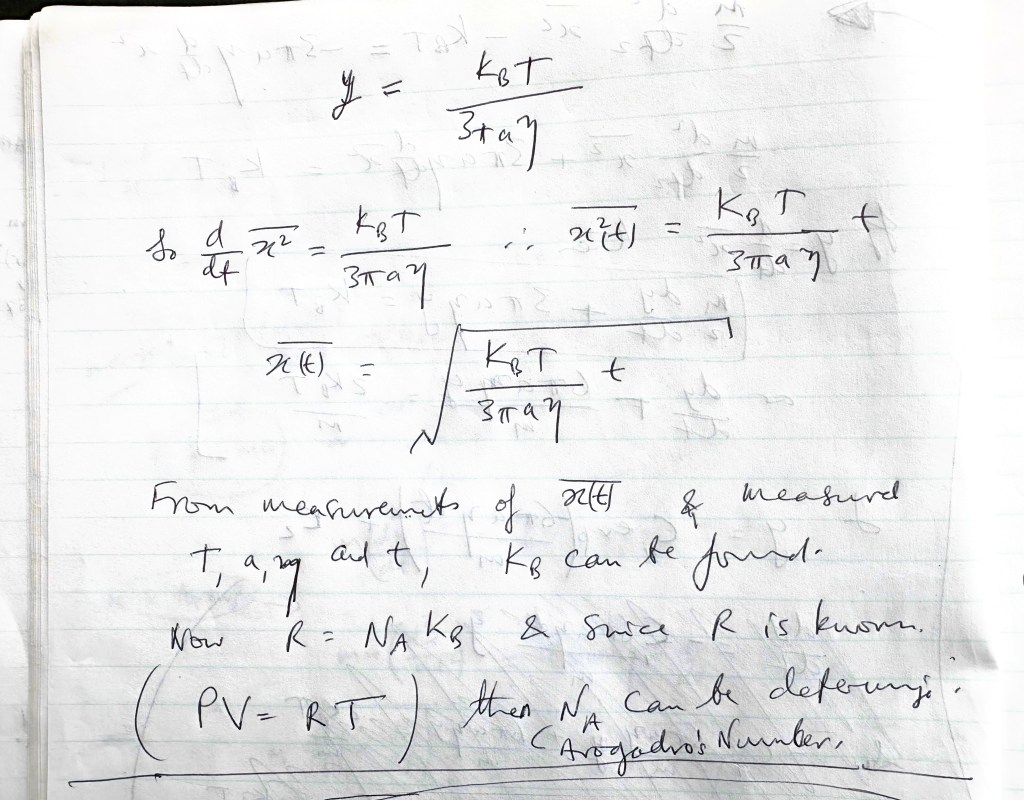 y = K_B T / 3πaη
So d/dt \overline{x²} = K_B T / 3πaη ∴ \overline{x²(t)} = K_B T / 3πaη t
\overline{x(t)} = √(K_B T / 3πaη t)
From measurements of \overline{x(t)} & measured
T, a, η and t, K_B can be found.
Now R = N_A K_B & since R is known.
(PV = RT) then N_A can be
(Avogadro's Number.